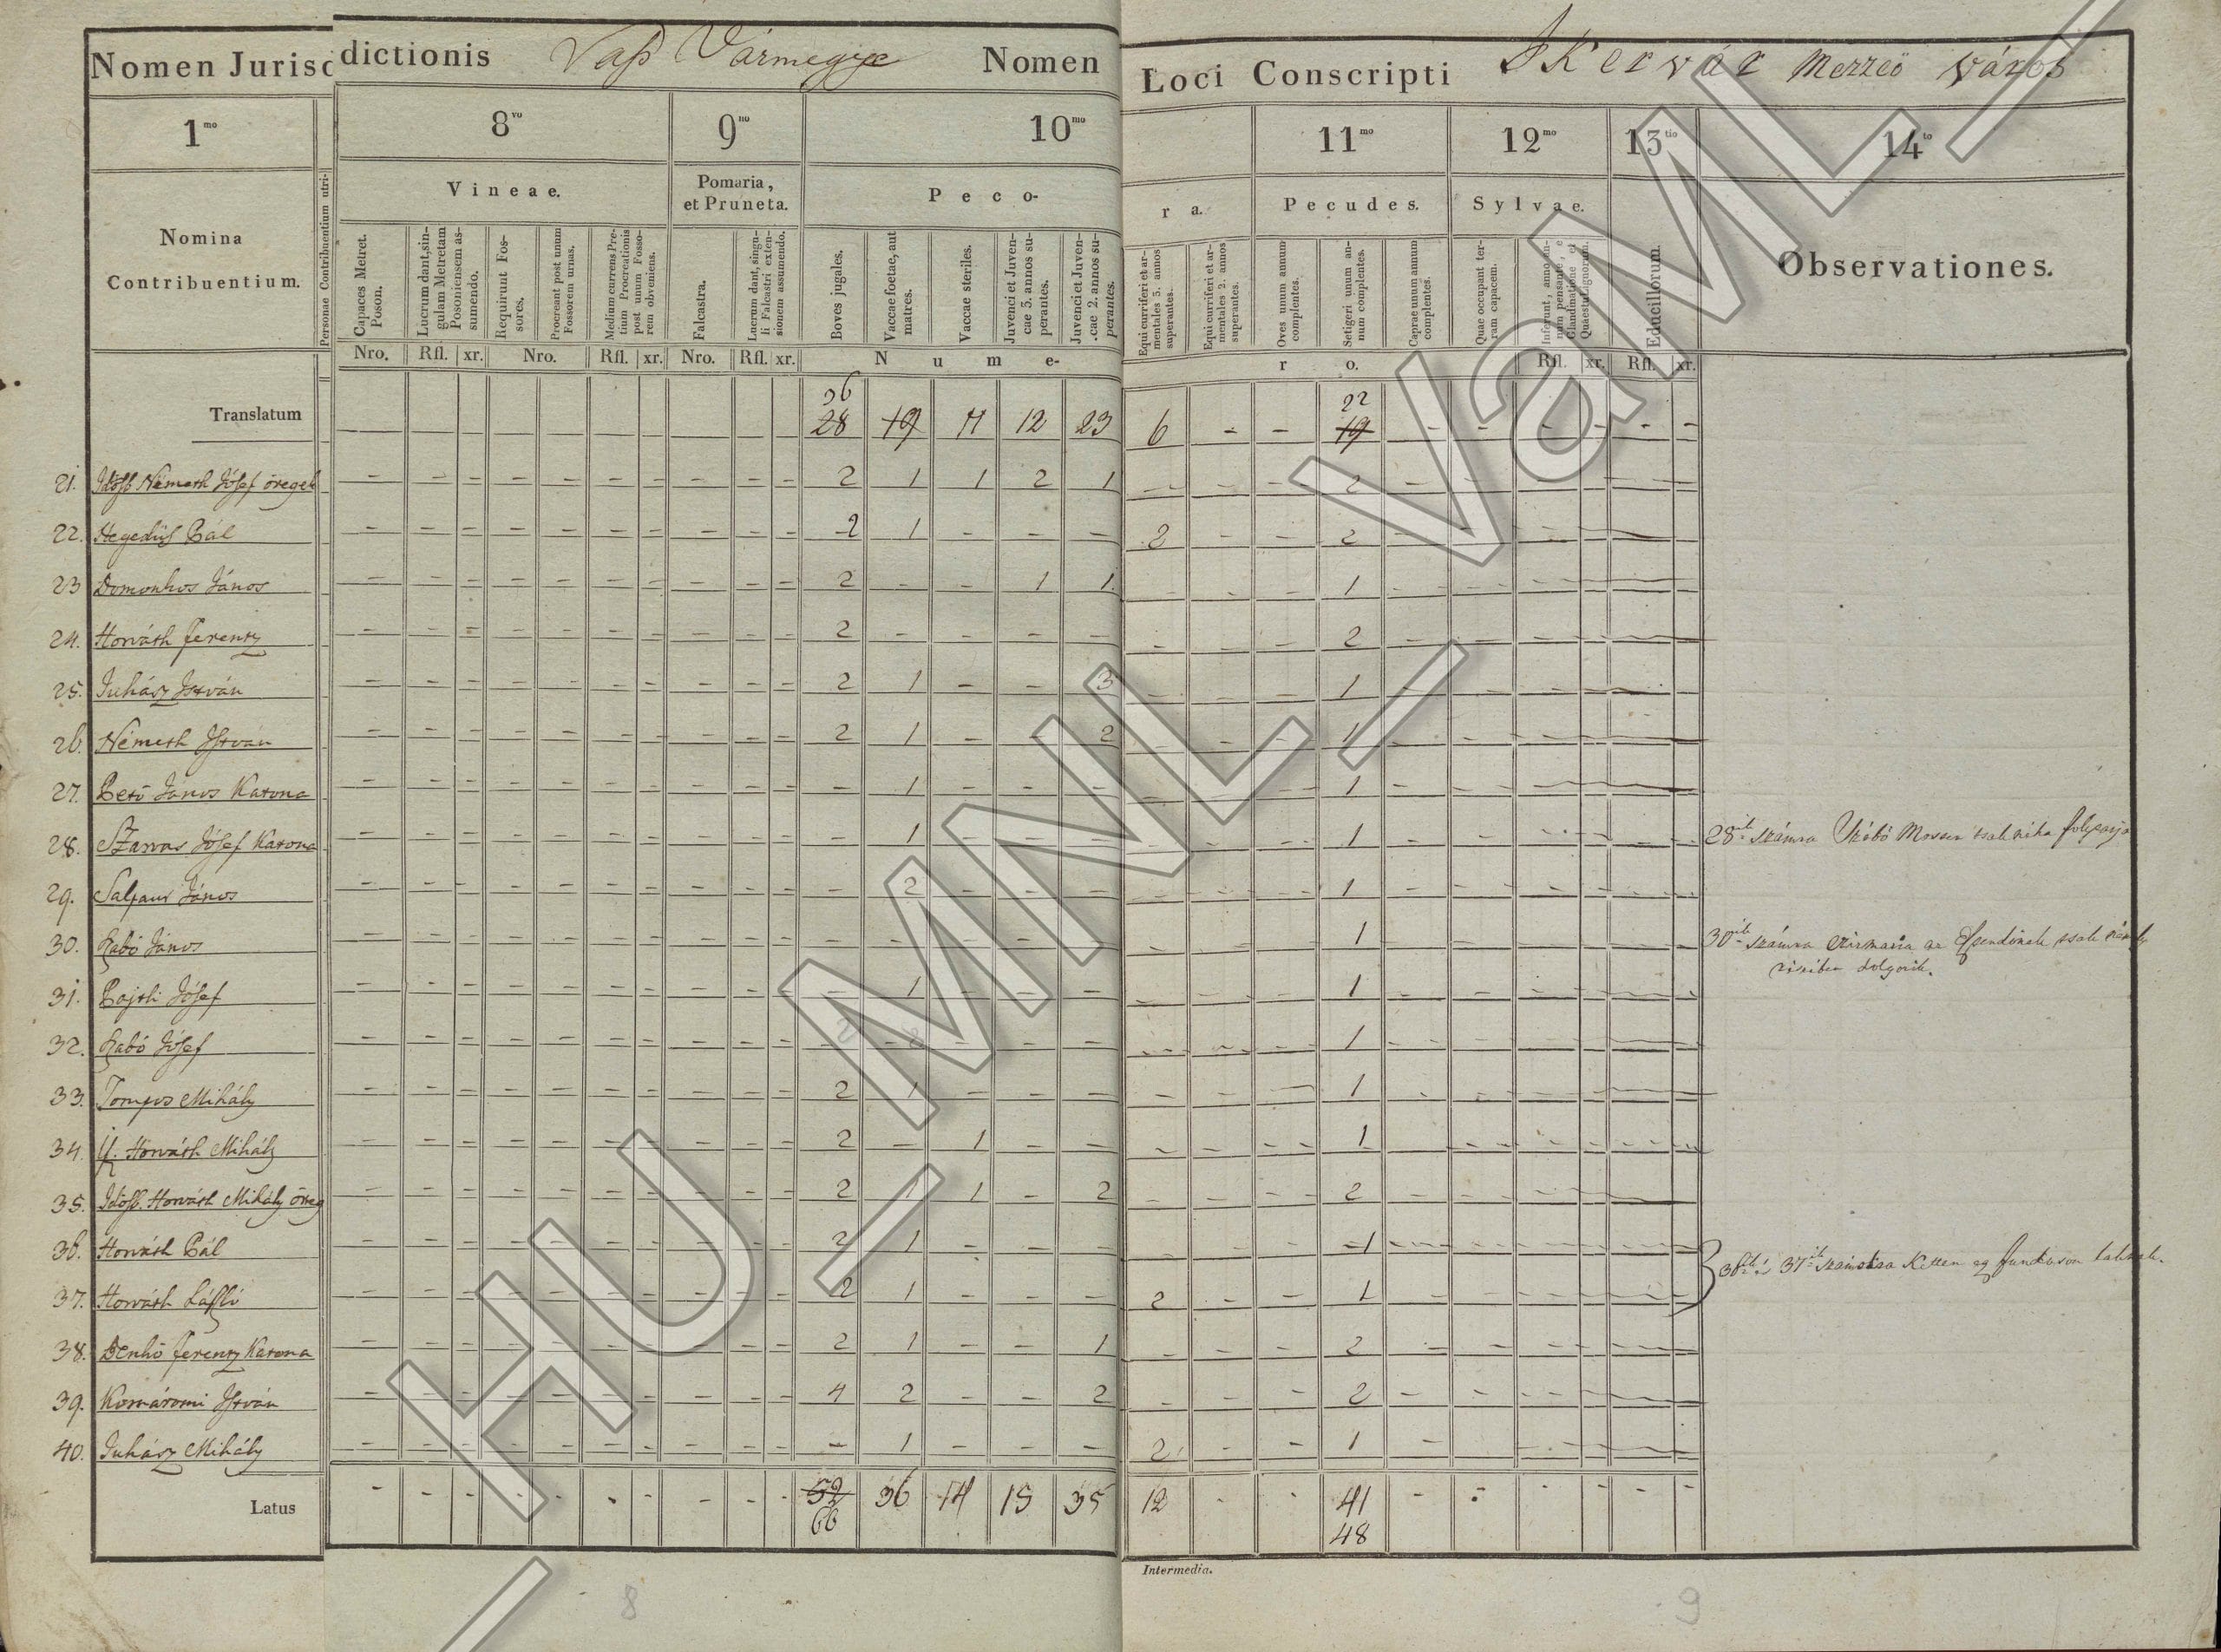 Nomen Jurisdictionis Vaß Vármegye Nomen Loci Conscripti Ikervár Mezzeö Város
1mo 8vo 9no 10mo 11mo 12mo 13tio 14to
Nomina Contribuentium.
Personae Contribuentium utri-
Vineae.
Pomaria, et Pruneta.
Peco-
ra.
Pecudes.
Sylvae.
Educillorum.
Observationes.
Capaces Metret. Poson.
Lucrum dant, singulam Metretam Posoniensem assumendo.
Requirunt Fossores.
Procreant post unum Fossorem urnas.
Medium currens Pretium Procreationis post unum Fossorem obveniens.
Falcastra.
Lucrum dant, singuli Falcastri extensionem assumendo.
Boves jugales.
Vaccae foetae, aut matres.
Vaccae steriles.
Juvenci et Juvencae 3. annos superantes.
Juvenci et Juvencae 2. annos superantes.
Equi curriferi et armentales 3. annos superantes.
Equi curriferi et armentales 2. annos superantes.
Oves unum annum complentes.
Setigeri unum annum complentes.
Caprae unum annum complentes.
Quae occupant terram capacem.
Inferunt, anno annum pensante, e Glandinatione et Quaestu Lignorum.
Nro. Rfl. xr. Nro. Rfl. xr. Nro. Rfl. xr. N u m e- r o. Rfl. xr. Rfl. xr.
36 22
Translatum 28 19 11 12 23 6 - - 19 - - - - - -
21. Idősb Németh Jósef öregeb 2 1 1 2 1 - - - 2
22. Hegedüs Pál 2 1 - - - 2 - - 2
23 Domonkos János 2 - - 1 1 - - - 1
24. Horváth Ferentz 2 - - - - - - - 2
25. Juhász István 2 1 - - 3 - - - 1
26. Németh István 2 1 - - 2 - - - 1
27. Pető János Katona - 1 - - - - - - 1
28. Szarvas Jósef Katona - 1 - - - - - - 1 28ik számra Szabó
29. János - 2 - - - - - - 1
30. Szabó János - - - - - - - - 1 30ik számra
dolgozik.
31. Pajtli Jósef - 1 - - - - - - 1
32. Szabó Jósef 1
33. Tompos Mihály 2 1 - - - - - - 1
34. Horváth Mihály 2 - 1 - - - - - 1
35. Idősb. Horváth Mihály öreg 2 1 1 - 2 - - - 2
36. Horváth Pál 2 1 - - - - - - 1 36ik 's 37ik számokra Ketten egy funduson laknak.
37. Horváth Lászlo 2 1 - - - 2 - - 1
38. Benkő Ferentz Katona 2 1 - - 1 - - - 2
39. Komáromi István 4 2 - - 2 - - - 2
40. Juhász Mihály - 1 - - - 2 - - 1
Latus 52 36 14 15 35 12 - - 41
66 48
Intermedia.
8 9
_HU_MNL_VaML_